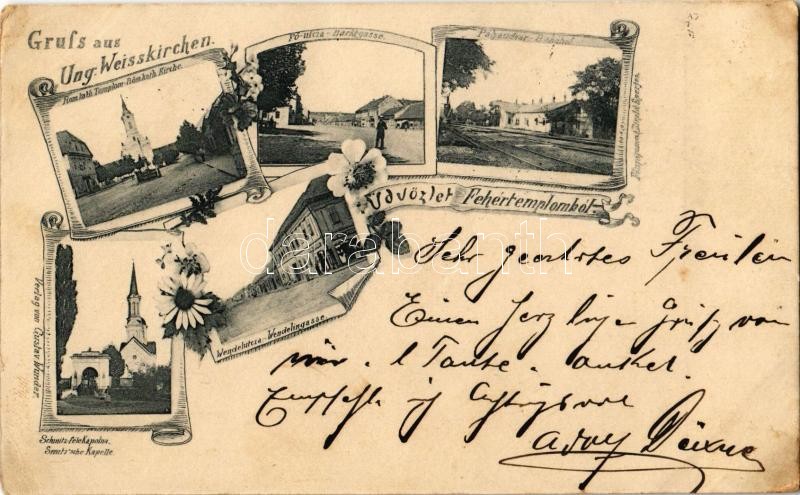 Gruss aus
Ung. Weisskirchen.
Rom. kath. Templom - Röm. kath. Kirche.
Fő-utcza - Marktgasse.
Pályaudvar - Bahnhof.
Üdvözlet Fehértemplomból.
Wendelutcza - Wendelingasse.
Verlag von Gustav Wunder.
Schmitz-féle Kapolna.
Smitz'sche Kapelle.
Sehr geehrtes Freulein
Einen herzlige Gruß von
mir. & Tante.
Empfehle
Adolf
darabanth